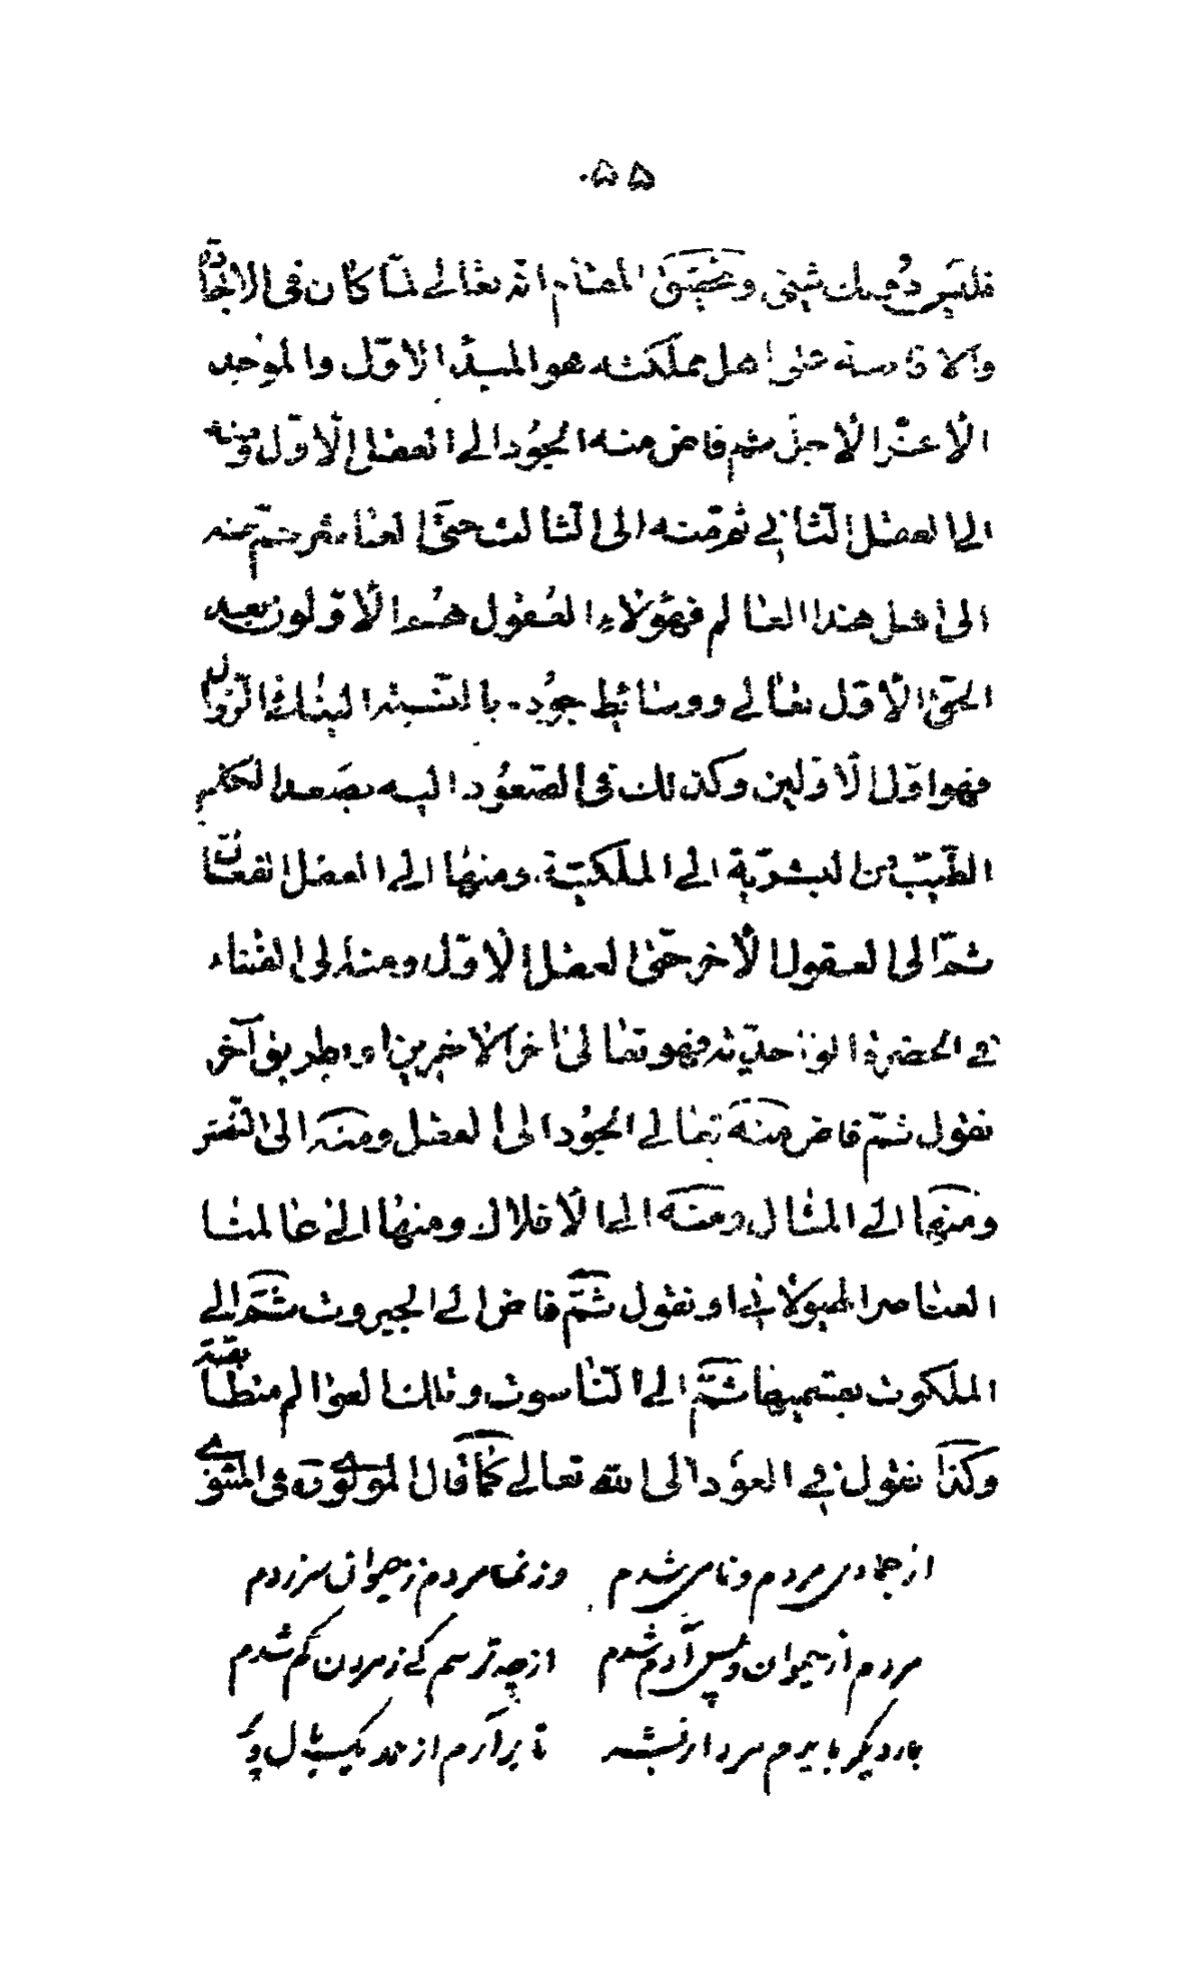 ۵۵۰
وتحقيق المقام انه تعالى لما كان فى الايجاد
على اهل مملكته هو المبدأ الاوّل والموجد
الأعزّ الأجلّ ثم فاض منه الجُود الى العقل الأوّل ومنه
الى العقل الثانى ثم منه الى الثالث حتى العاشر ثم منه
الى اهل هذا العالم فهؤلاء العقول هم الأوّلون بعد
الحقّ الأوّل تعالى ووسائط جوده بالنسبة اليك فى النزول
فهو اوّل الأوّلين وكذلك فى الصّعُود اليه يصَعد الكلم
الطيّب من البشريّة الى الملكيّة ومنها الى العقل الفعّال
ثمّ الى العقول الأخر حتى العقل الأوّل ومنه الى الفناء
فى الحضرة الواحديّة فهو تعالى آخر الآخرين او بطريق آخر
نقول ثمّ فاض منه تعالى الجُود الى العقل ومنه الى النفس
ومنها الى المثال ومنه الى الأفلاك ومنها الى عالمنا
العناصر الهيولانى او نقول ثمّ فاض الى الجبروت ثمّ الى
الملكوت بقسميها ثمّ الى النّاسوت وتلك العوالم متطابقة
وكذا نقول فى العود الى الله تعالى كما قال المولوى فى المثنوى
از جمادى مردم ونامى شدم وز نما مردم ز حيوان سر زدم
مردم از حيوانى وپس آدم شدم از چه ترسم كى ز مردن كم شدم
بار ديگر بايدم مرد از بشر تا برآرم از ملايك بال وپر